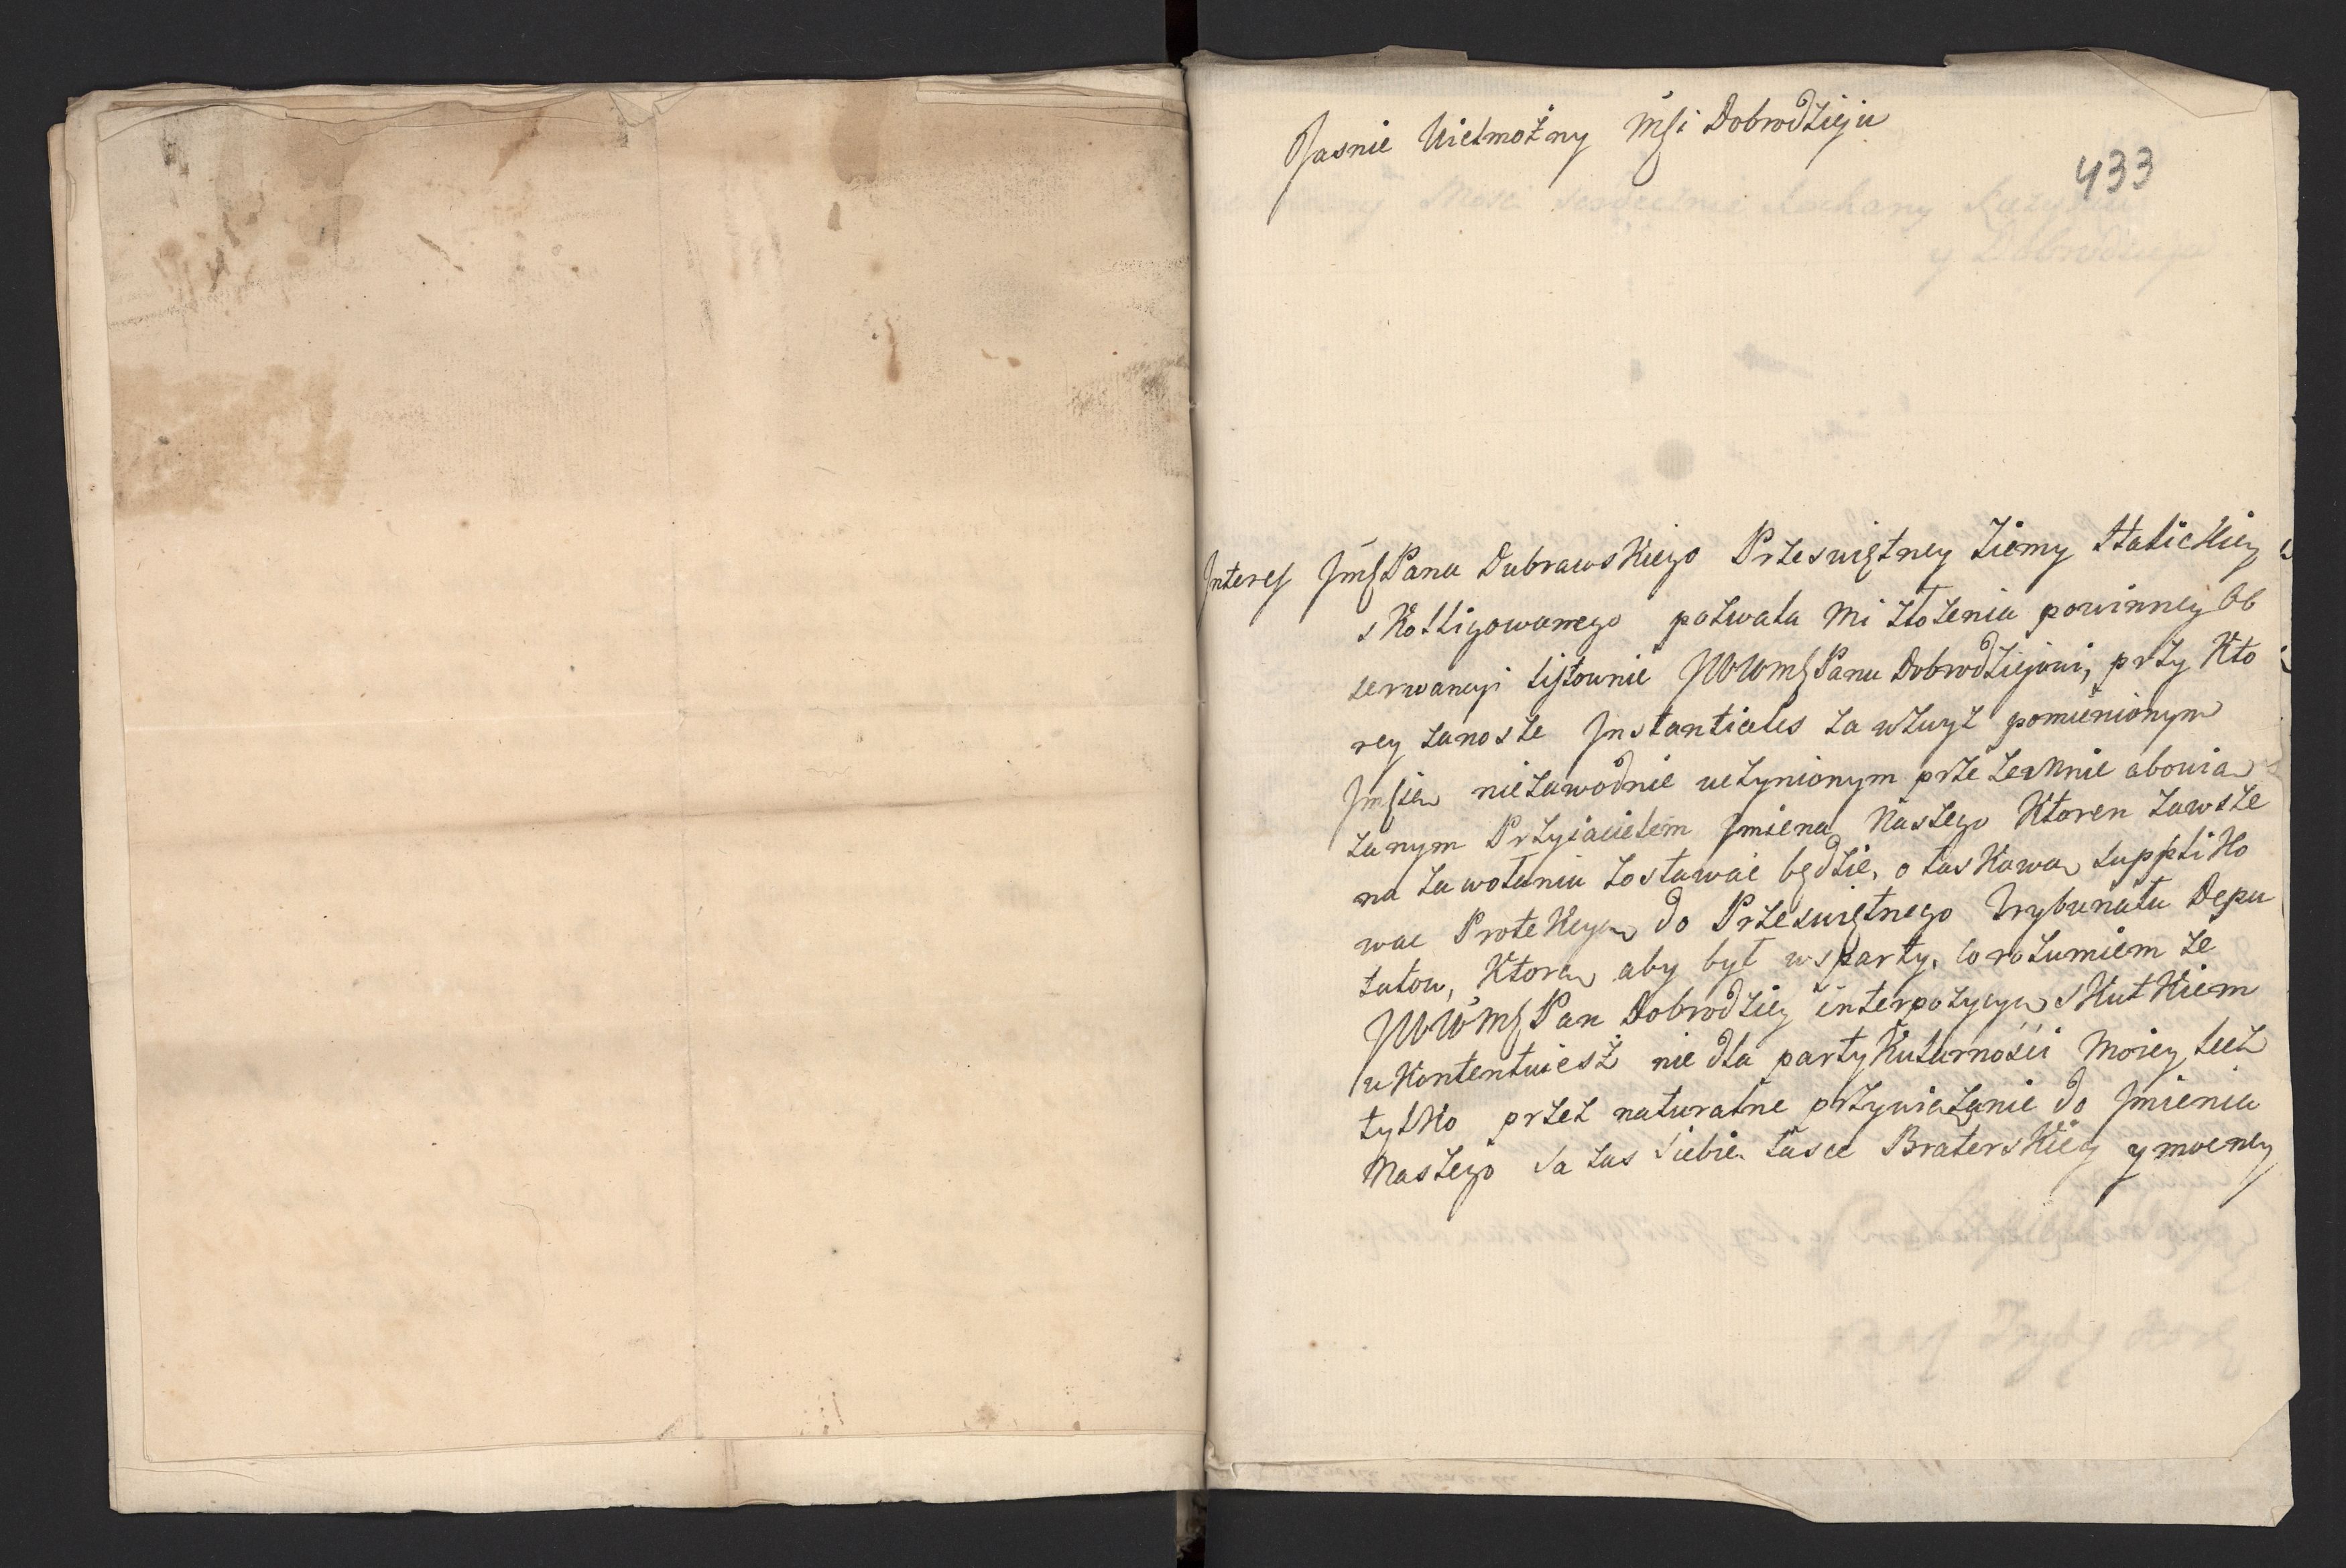 Jasnie Wielmożny Mści Dobrodzieju
433
Interes JmśPana Dubrawskiego Przeswiętney Ziemy Halickiey
skolligowanego pozwala mi złożenia powinney Ob
serwancyi listownie JWWmśPanu Dobrodziejowi, przy Kto
rey zanosze Instantiales za wzwyz pomienionym
Jmścią niezawodnie uczynionym przezemnie abowią
zanym Przyiacielem Jmiena Naszego Ktoren zawsze
na zawołaniu zostawać będzie, o łaskawą suppliko
wac Protekcyą do Przeswiętnego Trybunału Depu
tatow, Ktorą aby był wsparty, co rozumiem ze
JWWmśPan Dobrodziey interpozycyą skutkiem
ukontentuiesz nie dla partykularności Moiey lecz
tylko przez naturalne przywiązanie do Jmienia
Naszego Ja zas siebie łasce Braterskiey y mocney